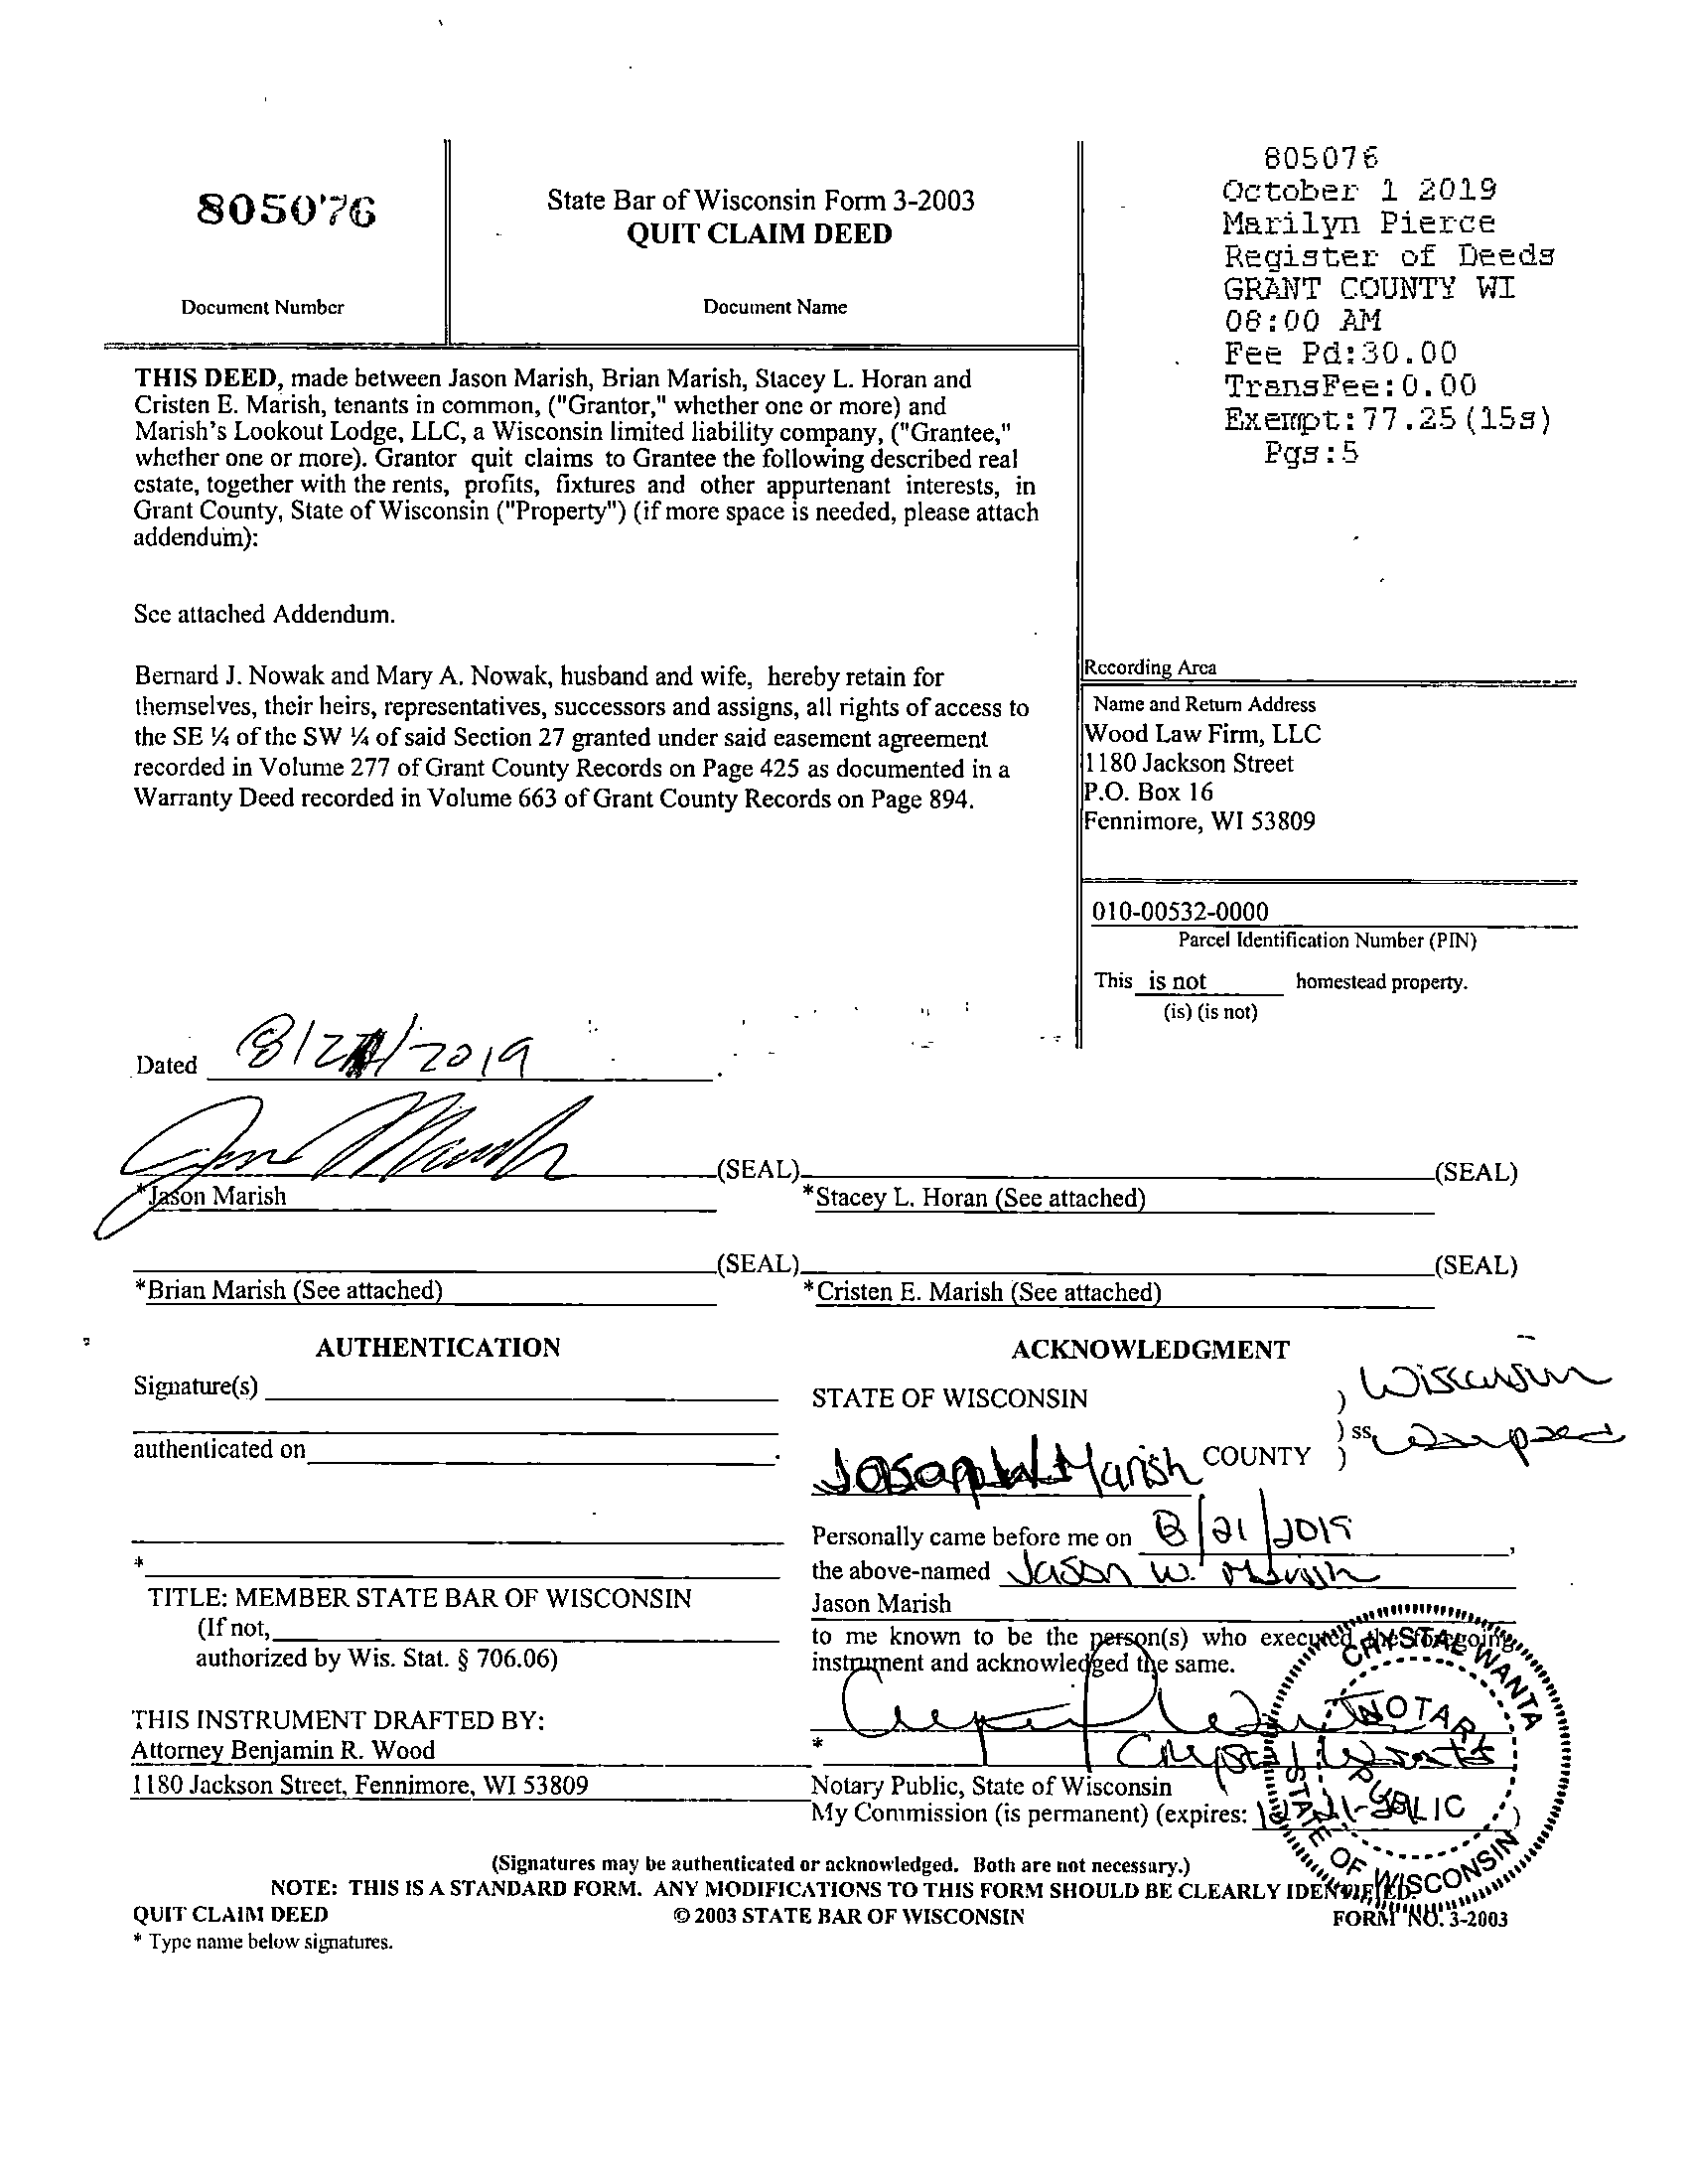 805076
State Bar of Wisconsin Form 3-2003
QUIT CLAIM DEED
Document Number
Document Name
805076
October 1 2019
Marilyn Pierce
Register of Deeds
GRANT COUNTY WI
08:00 AM
Fee Pd:30.00
TransFee:0.00
Exempt:77.25(15s)
Pgs:5
THIS DEED, made between Jason Marish, Brian Marish, Stacey L. Horan and
Cristen E. Marish, tenants in common, ("Grantor," whether one or more) and
Marish's Lookout Lodge, LLC, a Wisconsin limited liability company, ("Grantee,"
whether one or more). Grantor quit claims to Grantee the following described real
estate, together with the rents, profits, fixtures and other appurtenant interests, in
Grant County, State of Wisconsin ("Property") (if more space is needed, please attach
addendum):
See attached Addendum.
Bernard J. Nowak and Mary A. Nowak, husband and wife, hereby retain for
themselves, their heirs, representatives, successors and assigns, all rights of access to
the SE ¼ of the SW ¼ of said Section 27 granted under said easement agreement
recorded in Volume 277 of Grant County Records on Page 425 as documented in a
Warranty Deed recorded in Volume 663 of Grant County Records on Page 894.
Recording Area
Name and Return Address
Wood Law Firm, LLC
1180 Jackson Street
P.O. Box 16
Fennimore, WI 53809
010-00532-0000
Parcel Identification Number (PIN)
This is not homestead property.
(is) (is not)
Dated 8/21/2019
(SEAL) (SEAL)
*Jason Marish *Stacey L. Horan (See attached)
(SEAL) (SEAL)
*Brian Marish (See attached) *Cristen E. Marish (See attached)
AUTHENTICATION
Signature(s)
authenticated on
*
TITLE: MEMBER STATE BAR OF WISCONSIN
(If not,
authorized by Wis. Stat. § 706.06)
THIS INSTRUMENT DRAFTED BY:
Attorney Benjamin R. Wood
1180 Jackson Street, Fennimore, WI 53809
ACKNOWLEDGMENT
STATE OF WISCONSIN ) Wisconsin
) ss.
Marish COUNTY )
Personally came before me on 8/21/2019,
the above-named Jason W. Marish
Jason Marish
to me known to be the person(s) who executed the foregoing
instrument and acknowledged the same.
* Crystal Wanta
Notary Public, State of Wisconsin
My Commission (is permanent) (expires: )
CRYSTAL WANTA
NOTARY
PUBLIC
STATE OF WISCONSIN
(Signatures may be authenticated or acknowledged. Both are not necessary.)
NOTE: THIS IS A STANDARD FORM. ANY MODIFICATIONS TO THIS FORM SHOULD BE CLEARLY IDENTIFIED.
QUIT CLAIM DEED © 2003 STATE BAR OF WISCONSIN FORM NO. 3-2003
* Type name below signatures.